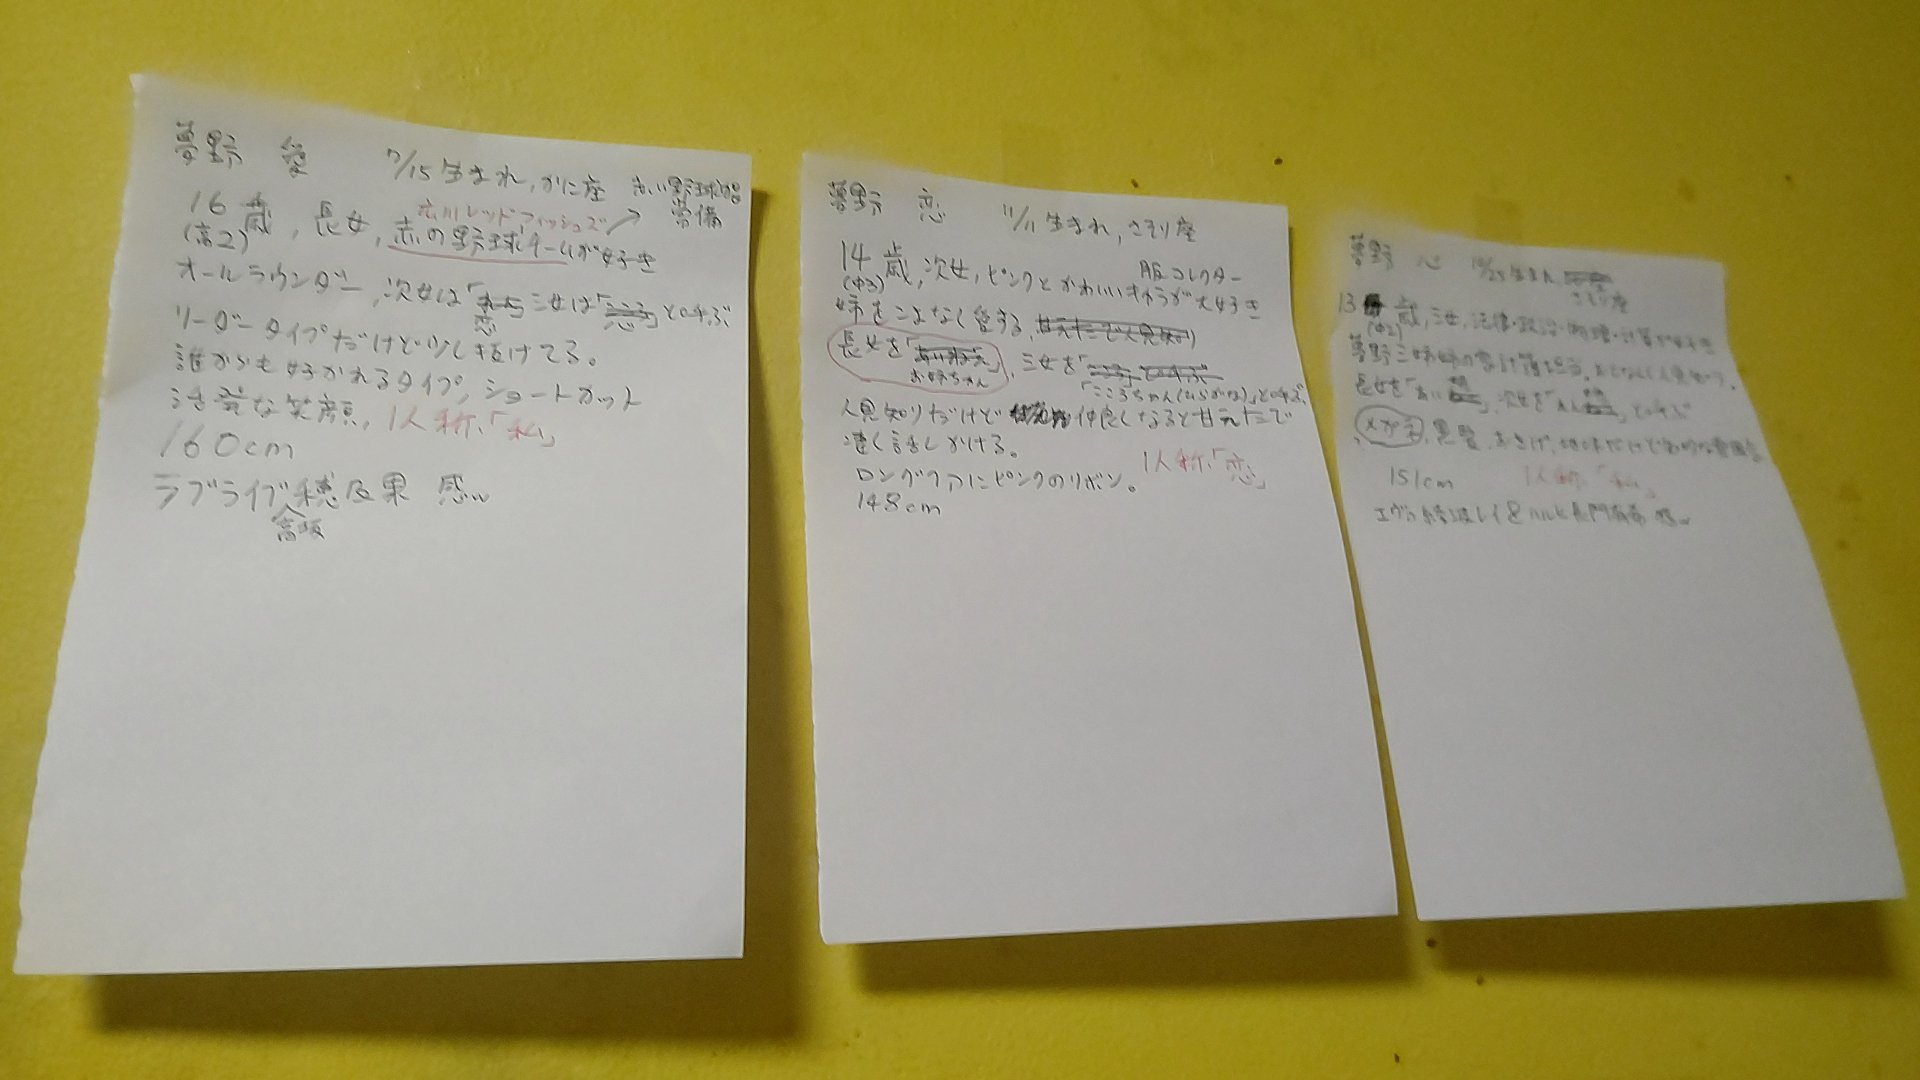 夢野 愛 7/15生まれ,かに座 赤い野球帽
常備
16歳,長女,赤の野球チームが好き
(高2)
広川レッドフィッシュズ
オールラウンダー,次女は「恋」三女は「」と呼ぶ
リーダータイプだけど少し抜けてる。
誰からも好かれるタイプ,ショートカット
活発な笑顔, 1人称,「私」
160cm
ラブライブ穂及果 感w
高坂
夢野 恋 11/11生まれ,さそり座
14歳,次女,ピンクとかわいいキャラが大好き
(中3)
服コレクター
姉をこよなく愛する,
長女を「お姉ちゃん」,三女を
「こころちゃん(ひらがな)」と呼ぶ
人見知りだけど仲良くなると甘えたで
速く話しかける。
1人称,「恋」
ロングヘアにピンクのリボン。
148cm
夢野 心 生まれ
さそり座
13歳,三女,法律・政治・物理・計算が好き
(中2)
夢野三姉妹の
長女を「あい」,次女を「れん」と呼ぶ
メガネ,黒髪,おさげ,
151cm 1人称,「私」
エヴァ綾波レイ&ハルヒ長門有希 感w